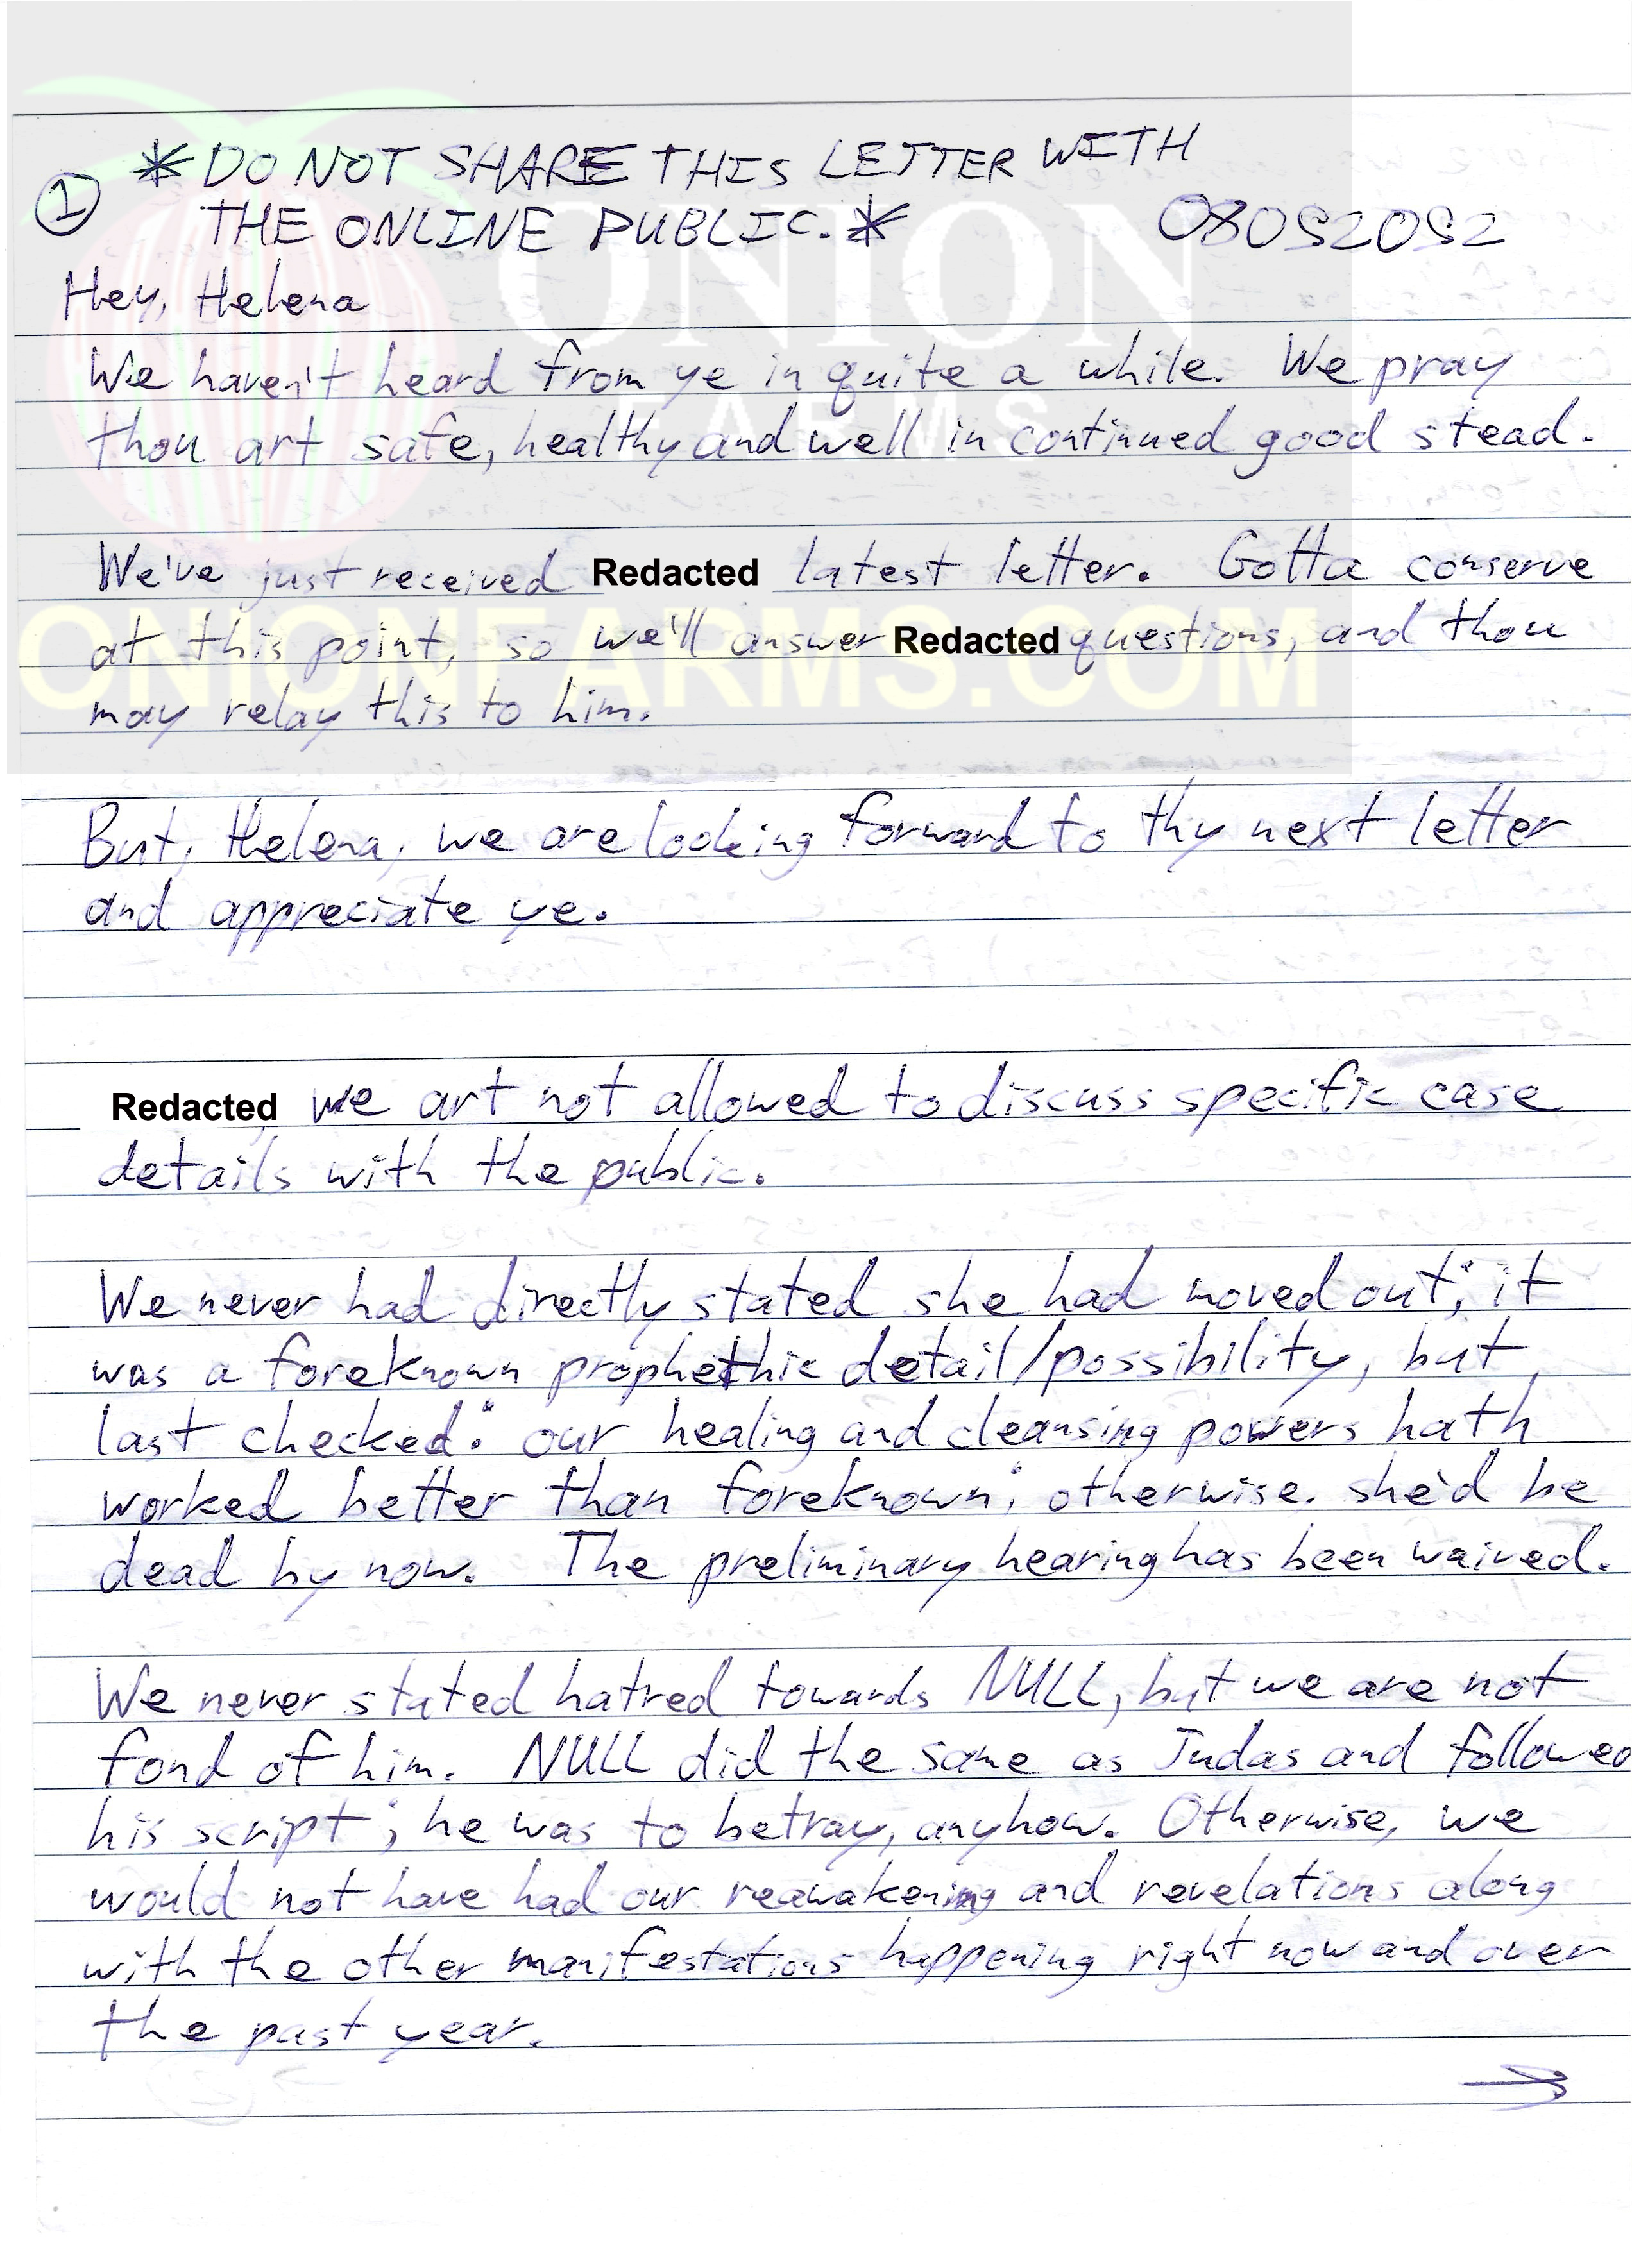 *DO NOT SHARE THIS LETTER WITH
① THE ONLINE PUBLIC.* 08052052
Hey, Helena
We haven't heard from ye in quite a while. We pray
thou art safe, healthy and well in continued good stead.
We've just received Redacted latest letter. Gotta conserve
at this point, so we'll answer Redacted questions, and thou
may relay this to him.
But, Helena, we are looking forward to thy next letter
and appreciate ye.
Redacted we art not allowed to discuss specific case
details with the public.
We never had directly stated she had moved out; it
was a foreknown prophethic detail/possibility, but
last checked: our healing and cleansing powers hath
worked better than foreknown; otherwise. she'd be
dead by now. The preliminary hearing has been waived.
We never stated hatred towards NULL, but we are not
fond of him. NULL did the same as Judas and followed
his script; he was to betray, anyhow. Otherwise, we
would not have had our reawakening and revelations along
with the other manifestations happening right now and over
the past year.
→
ONION
FARMS
ONIONFARMS.COM